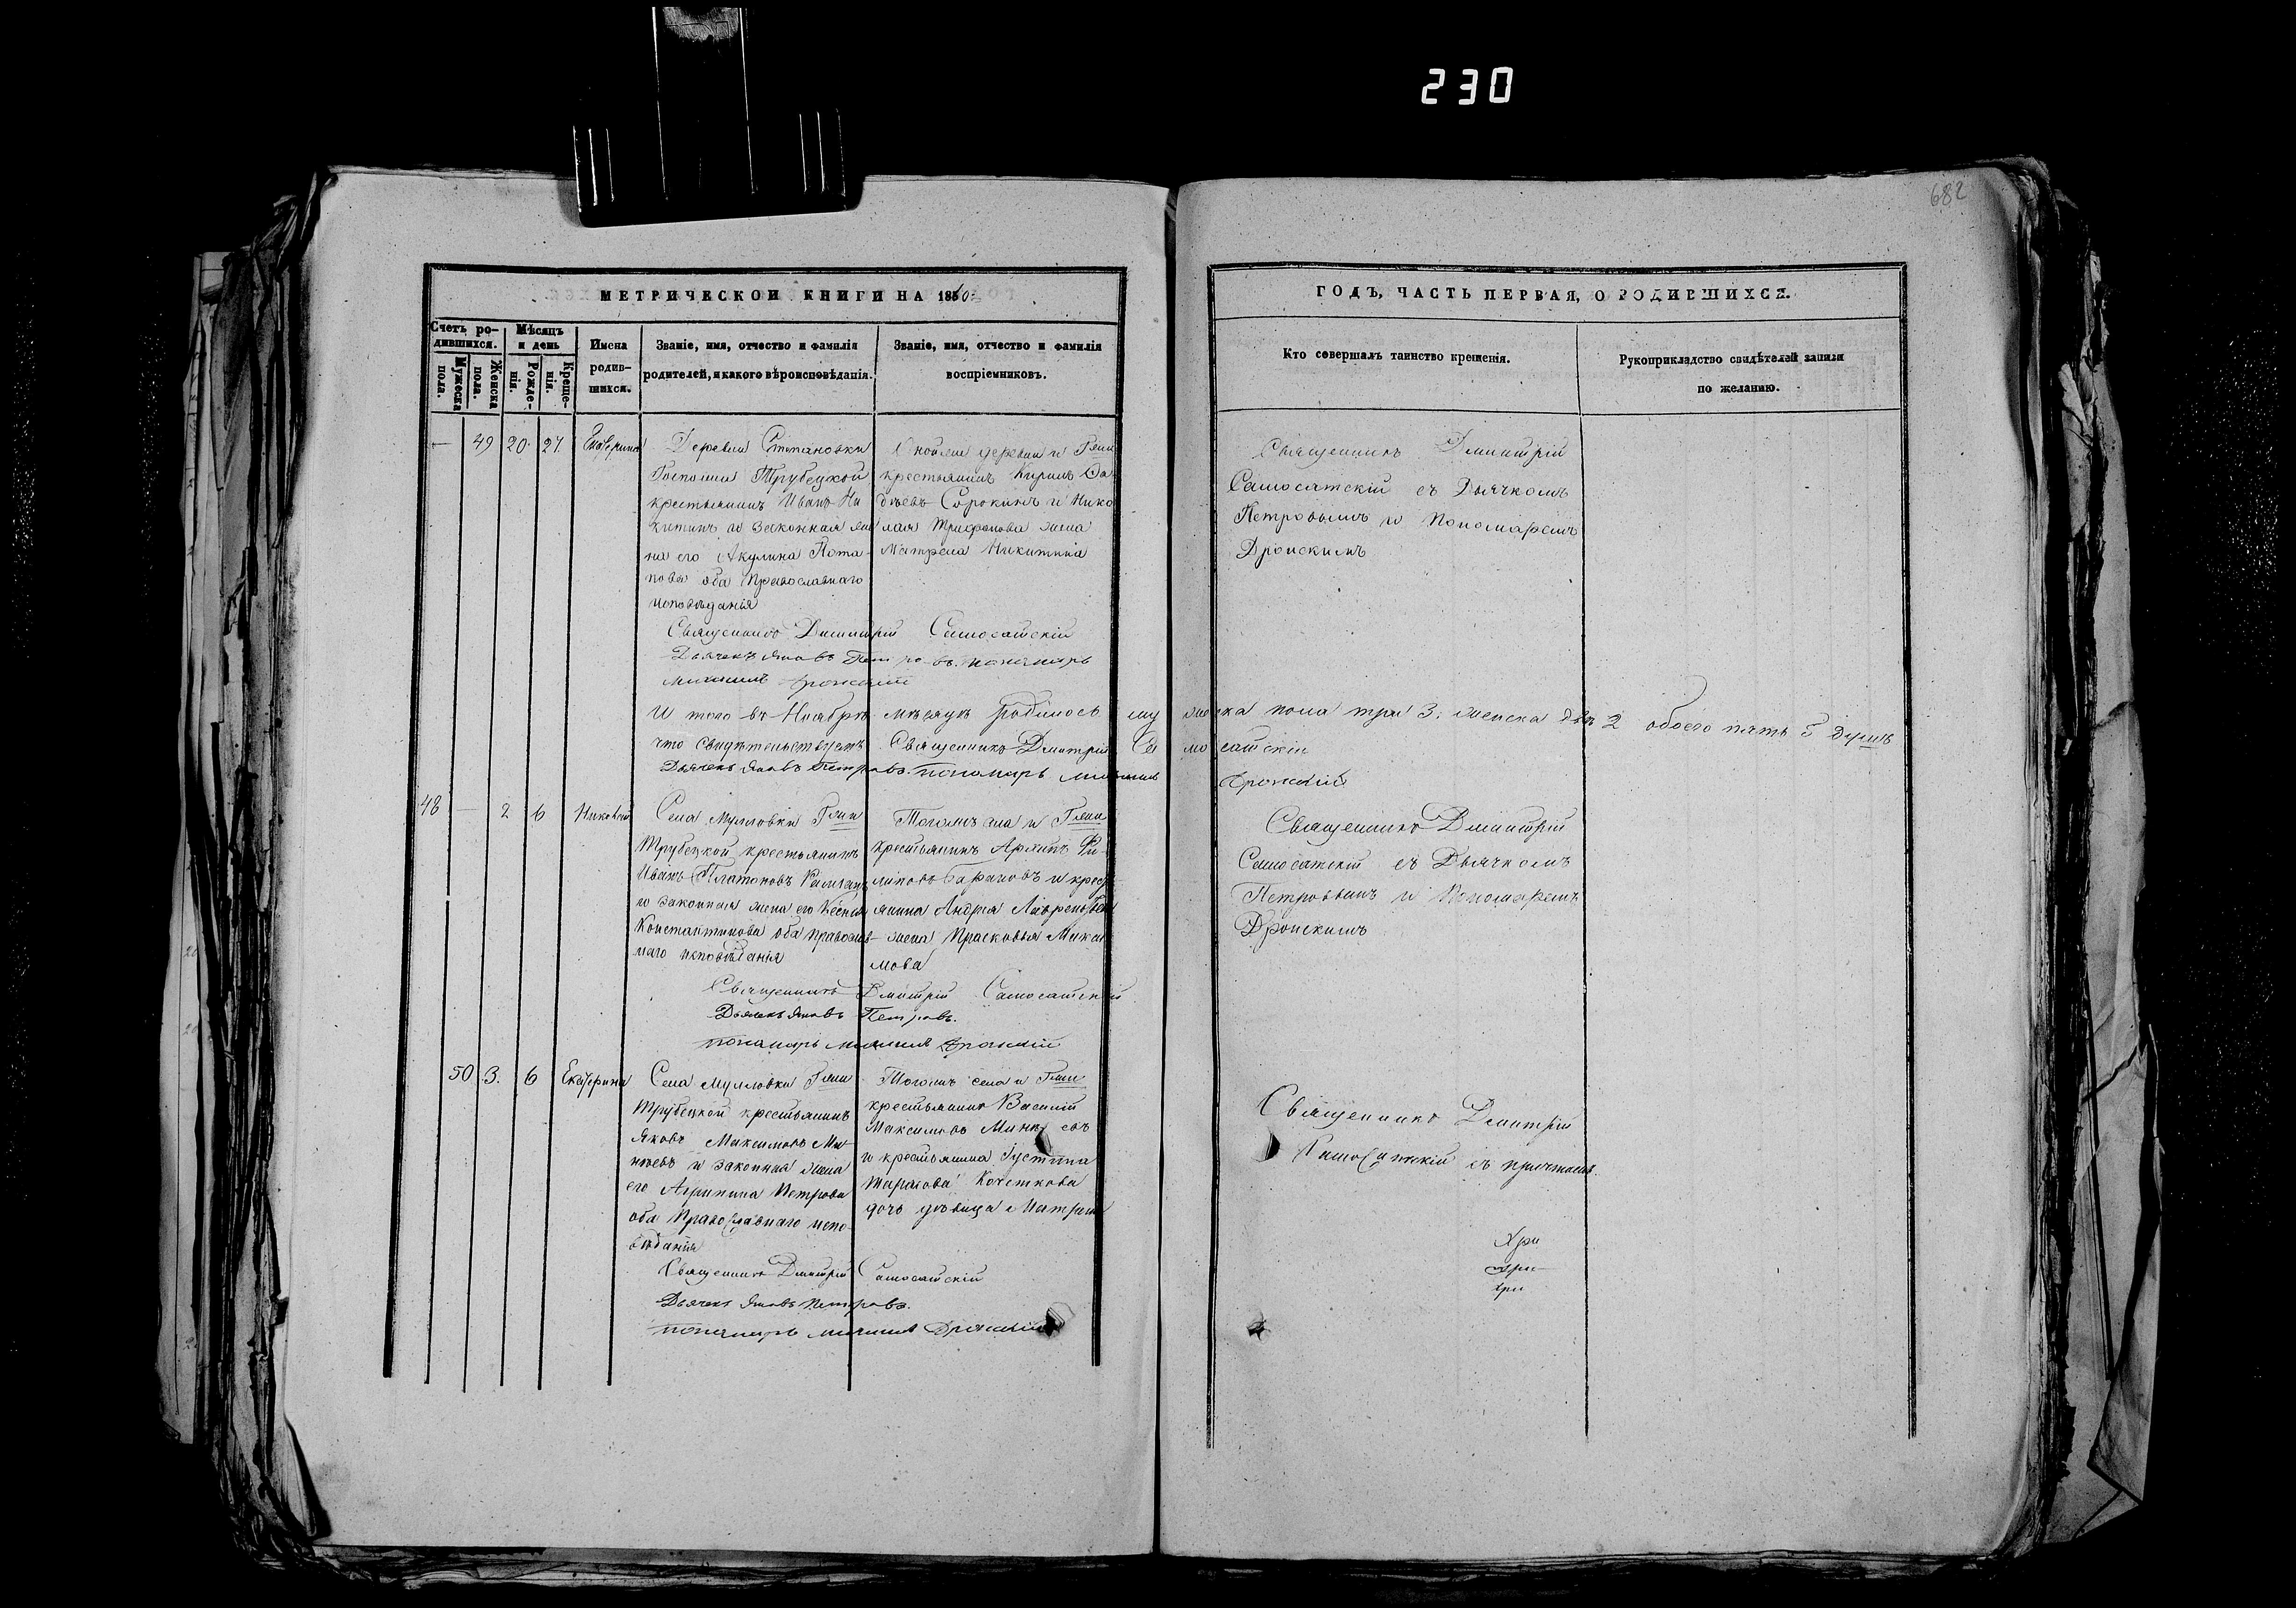 230
682
МЕТРИЧЕСКОЙ КНИГИ НА 1860
ГОДЪ, ЧАСТЬ ПЕРВАЯ, О РОДИВШИХСЯ.
Счетъ ро-
дившихся.
Мужеска пола.
Женска пола.
Мѣсяцъ
и день
Рожде-
нія.
Креще-
нія.
Имена
родив-
шихся.
Званіе, имя, отчество и фамилія
родителей, и какого вѣроисповѣданія.
Званіе, имя, отчество и фамилія
воспріемниковъ.
Кто совершалъ таинство крещенія.
Рукоприкладство свидѣтелей записи
по желанію.
— 49 20 27 Екатерина
Деревни Степановки
Госпожи Трубецкой
крестьянинъ Иванъ Ни
китинъ и законная же
на его Акулина Пота
пова оба Православнаго
исповѣданія
крестьянинъ Кирилъ
Сорокинъ и Нико
лая Трифонова жена
Матрена Никитина
Священникъ Дмитрій
Самосатскій съ Дьячкомъ
Петровымъ и Пономаремъ
Дронскимъ
Священникъ Димитрій Самосатскій
Дьячекъ Яковъ Петровъ. пономарь
Михаилъ Дронскій
И того въ Ноябрѣ мѣсяцѣ родилось мужеска пола три 3. женска двѣ 2 обоего пять 5 душъ
что свидѣтельствуемъ Священникъ Дмитрій Самосатскій
Дьячекъ Яковъ Петровъ. пономарь Михаилъ Дронскій
48 — 2 6 Николай
Села Мулловки Гжи
Трубецкой крестьянинъ
Иванъ Платоновъ
и законная жена его Ксенія
Константинова оба православ-
наго исповѣданія
Тогожъ села и Гжи
крестьянинъ Архипъ Фи-
липовъ Барановъ и крест
янина Андрея Лаврентьева
жена Прасковья Макси
мова
Священникъ Дмитрій
Самосатскій съ Дьячкомъ
Петровымъ и Пономаремъ
Дронскимъ
Священникъ Дмитрій Самосатскій
Дьячекъ Яковъ Петровъ.
пономарь Михаилъ Дронскій
50 3. 6 Екатерина
Села Мулловки Гжи
Трубецкой крестьянинъ
Яковъ Максимовъ Ми
нѣевъ и законная жена
его Агрипина Петрова
оба Православнаго испо-
вѣданія
Тогожъ села и Гжи
крестьянинъ Василій
Максимовъ Минѣевъ
и крестьянина Густина
Тарасова Кочеткова
дочь дѣвица Матрена
Священникъ Дмитрій
Самосатскій съ причтомъ.
При
при
при
Священникъ Дмитрій Самосатскій
Дьячекъ Яковъ Петровъ.
пономарь Михаилъ Дронскій